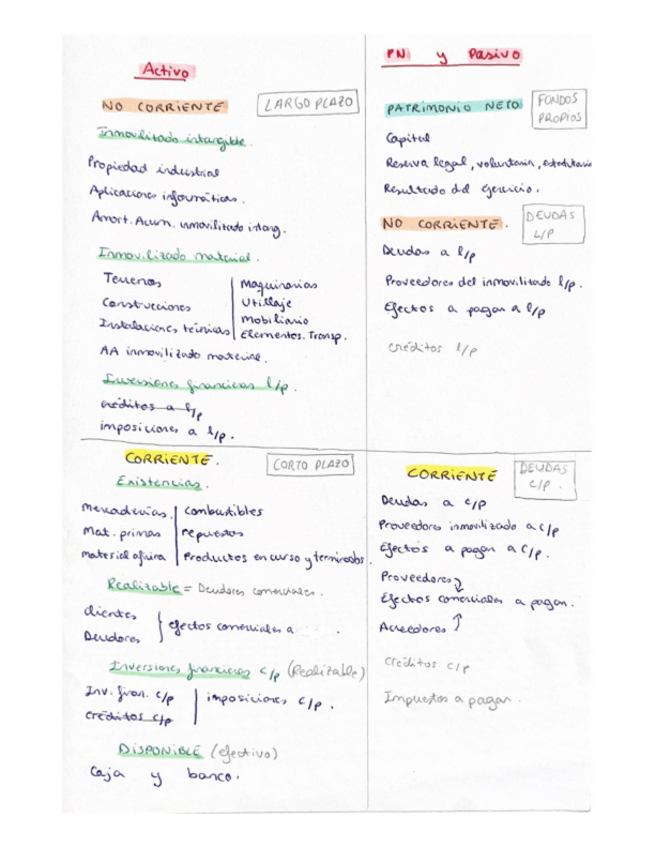 Activo
NO CORRIENTE
LARGO PLAZO
Inmovilizado intangible.
Propiedad industrial
Aplicaciones informáticas.
Amort. Acum. inmovilizado intang.
Inmovilizado material.
Terrenos
Construcciones
Instalaciones técnicas
Maquinarias
Utillaje
Mobiliario
Elementos. Transp.
AA inmovilizado material.
Inversiones financieras l/p.
créditos a l/p
imposiciones a l/p.
CORRIENTE.
CORTO PLAZO
Existencias.
Mercaderías.
Mat. primas
material oficina
combustibles
repuestos
Productos en curso y terminados.
Realizable = Deudores comerciales.
clientes
Deudores
efectos comerciales a .
Inversiones financieras c/p (Realizable)
Inv. finan. c/p
créditos c/p
imposiciones c/p.
DISPONIBLE (efectivo)
Caja y banco.
PN y Pasivo
PATRIMONIO NETO
FONDOS
PROPIOS
Capital
Reserva legal, voluntaria, estatutaria
Resultado del ejercicio.
NO CORRIENTE.
DEUDAS
L/P
Deudas a l/p
Proveedores del inmovilizado l/p.
Efectos a pagar a l/p
créditos l/p
CORRIENTE
DEUDAS
C/P.
Deudas a c/p
Proveedores inmovilizado a c/p
Efectos a pagar a c/p.
Proveedores
Efectos comerciales a pagar.
Acreedores
créditos c/p
Impuestos a pagar.